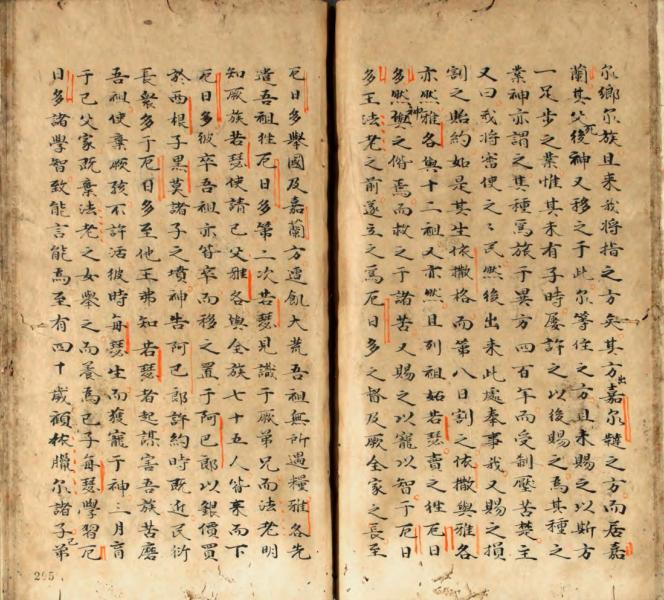 尔鄉尔族且来我將指之方矣其方出嘉尔韃之方而居嘉
蘭其父死後神又移之于此尔等住之方且未賜之以斯方
一足步之業惟其未有子時屡許之以後賜之焉其種之
業神亦謂之其種寓旅于異方四百年而受制壓苦楚主
又曰我將審使之之民然後出来此處奉事我又賜之損
割之貽約如是其生依撒格而第八日割之依撒與雅各
亦然雅各與十二祖又亦然且列祖妬若瑟賣之徃厄日
多然神與之偕焉而救之于諸苦又賜之以寵以智于厄日
多王法老之前遂立之為厄日多之督及厥全家之長至
厄日多舉國及嘉蘭方遭飢大荒吾祖無所遇糧雅各先
遣吾祖徃厄日多第二次若瑟見識于厥弟兄而法老明
知厥族若瑟使請己父雅各與全族七十五人皆来而下
厄日多彼卒吾祖亦皆卒而移之置于阿巴郎以銀價買
於西根子黒莫諸子之墳神告阿巴郎許約時既近民衍
長繁多于厄日多至他王弗知若瑟者起謀害吾族苦磨
吾祖使棄厥孩不許活彼時每瑟生而獲寵于神三月育
于己父家既棄法老之女舉之而養為己子每瑟學習厄
日多諸學智致能言能為至有四十歲顧依臘尔諸子己弟
295